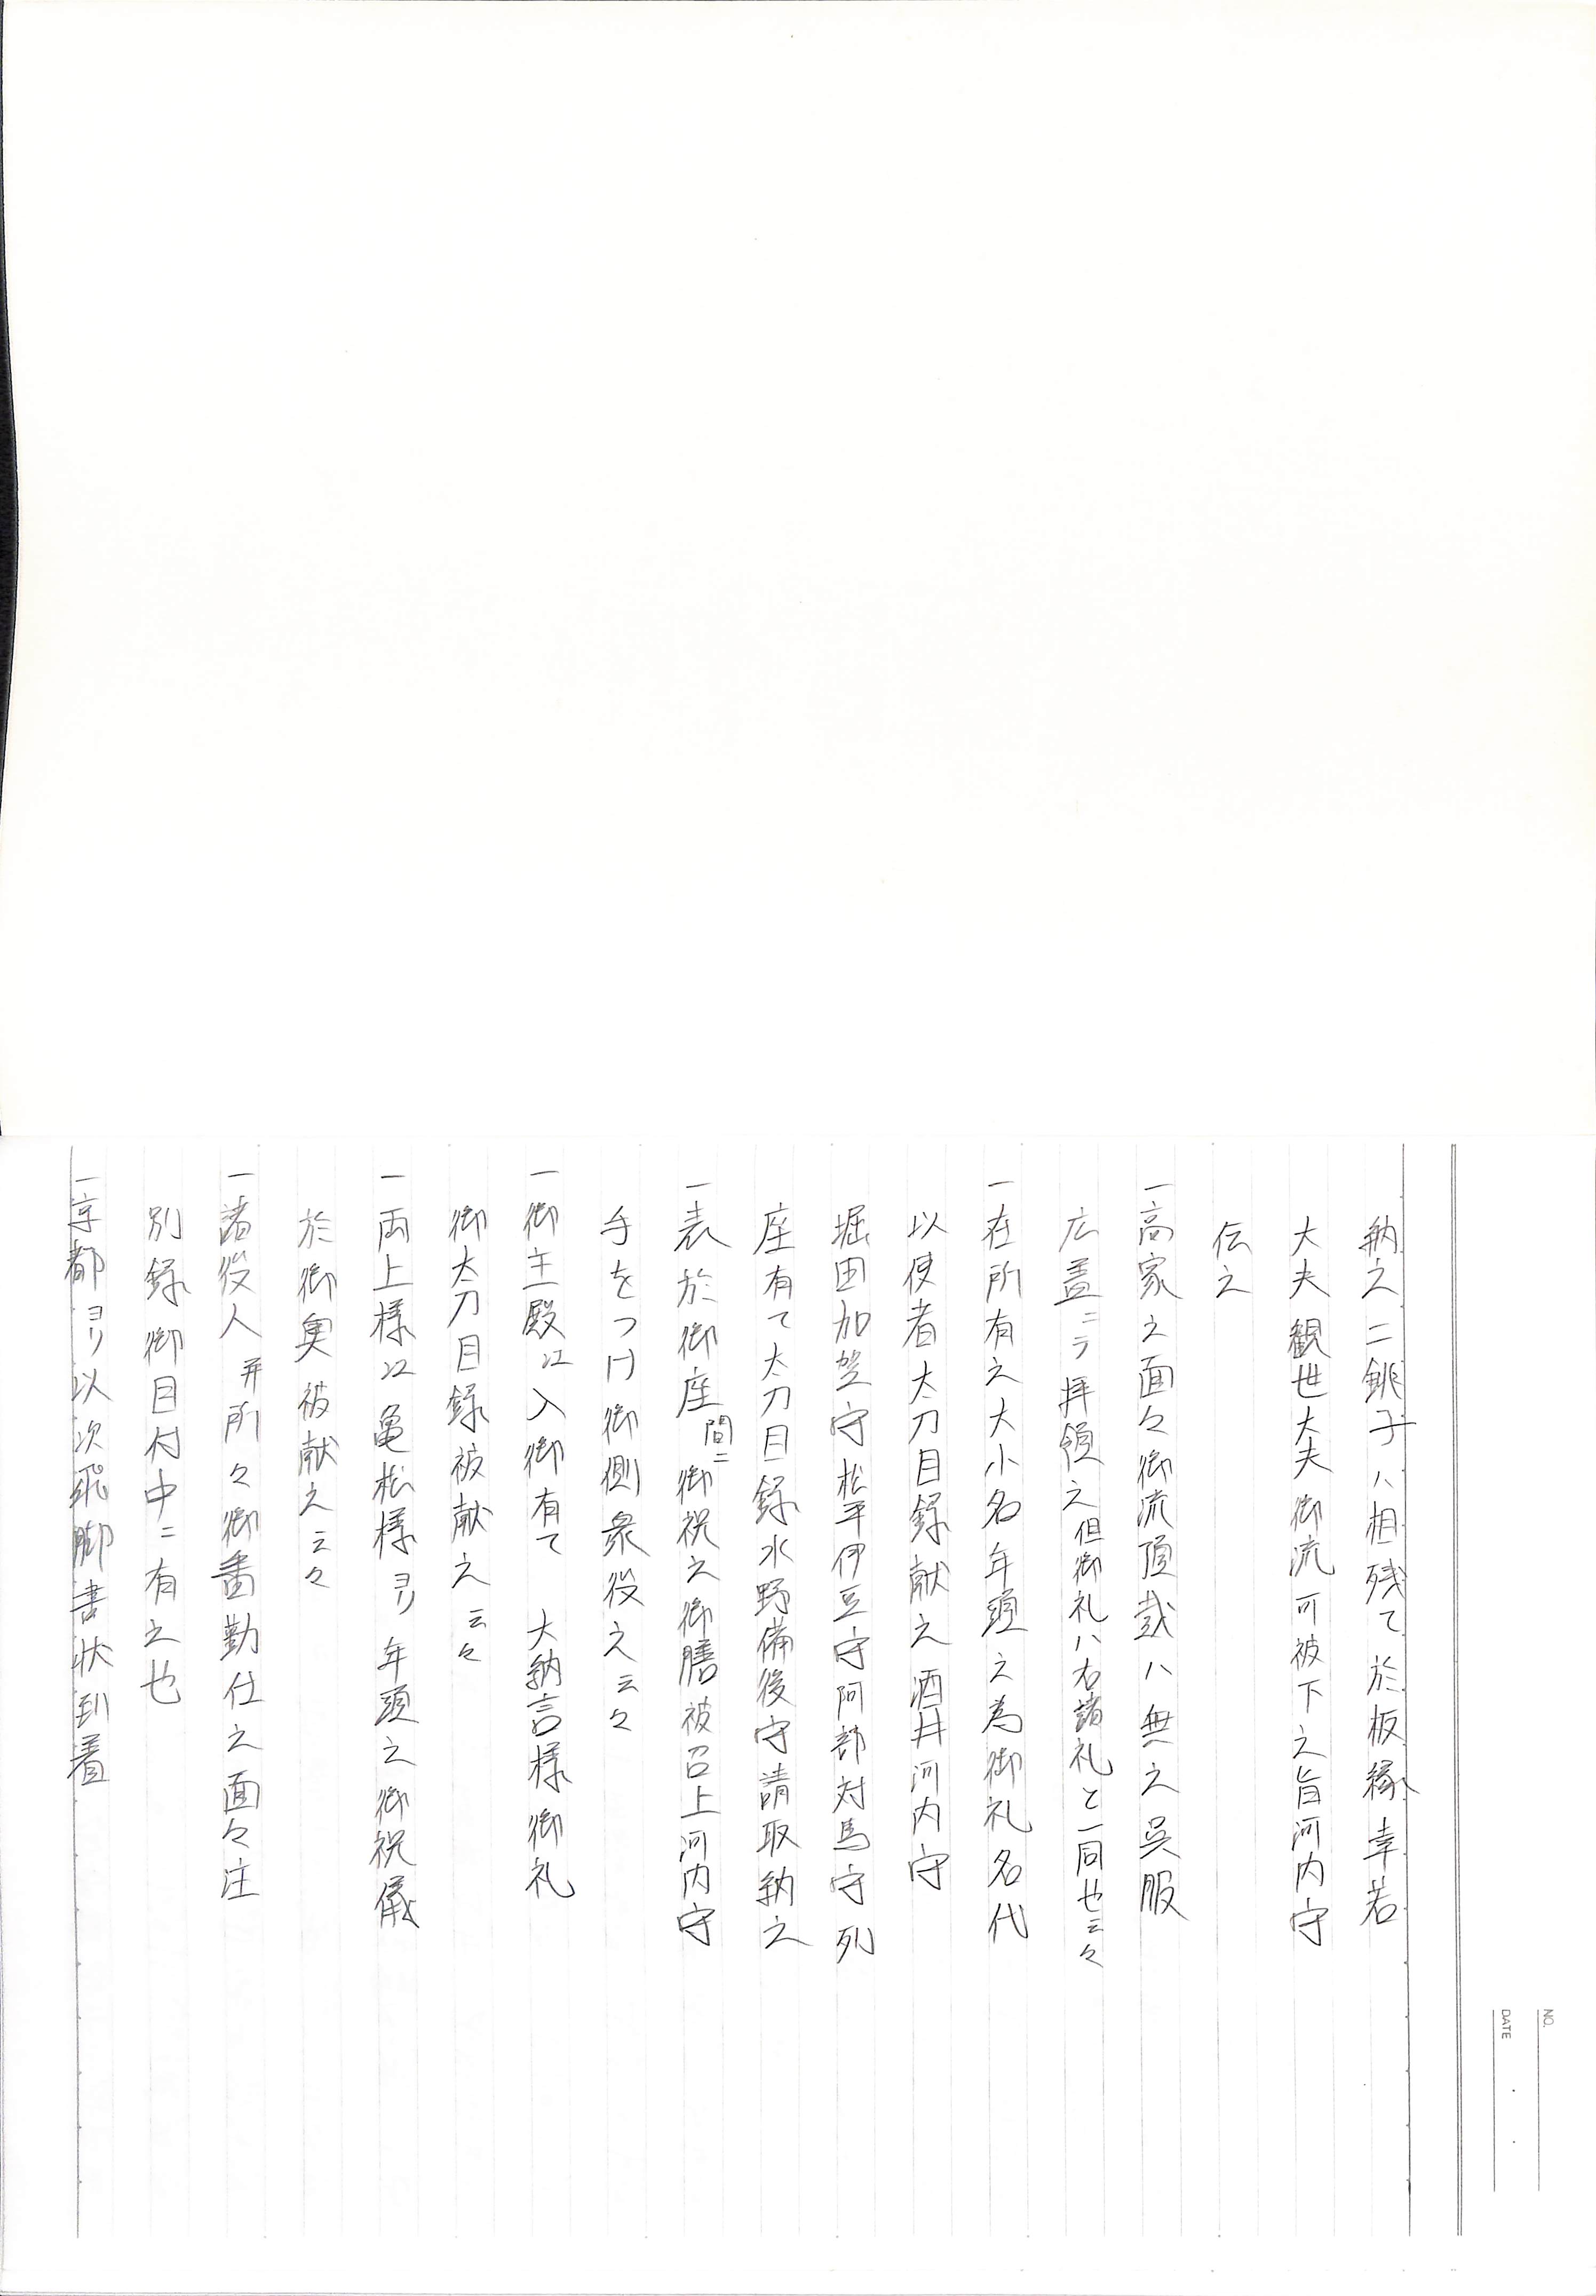 納之二銚子ハ相残て於板縁幸若
大夫観世大夫御流可被下之旨河内守
伝之
一高家之面々御流頂戴ハ無之呉服
広蓋ニテ拝領之但御礼ハ右諸礼と一同也云々
一在所有之大小名年頭之為御礼名代
以使者太刀目録献之酒井河内守
堀田加賀守松平伊豆守阿部対馬守列
座有て太刀目録水野備後守請取納之
一表於御座間ニ御祝之御膳被召上河内守
手をつけ御側衆役之云々
一御主殿江入御有て 大納言様御礼
御太刀目録被献之云々
一両上様江亀松様ヨリ年頭之御祝儀
於御奥被献之云々
一諸役人并所々御番勤仕之面々注
別録御目付中ニ有之也
一京都ヨリ以次飛脚書状到着
NO.
DATE